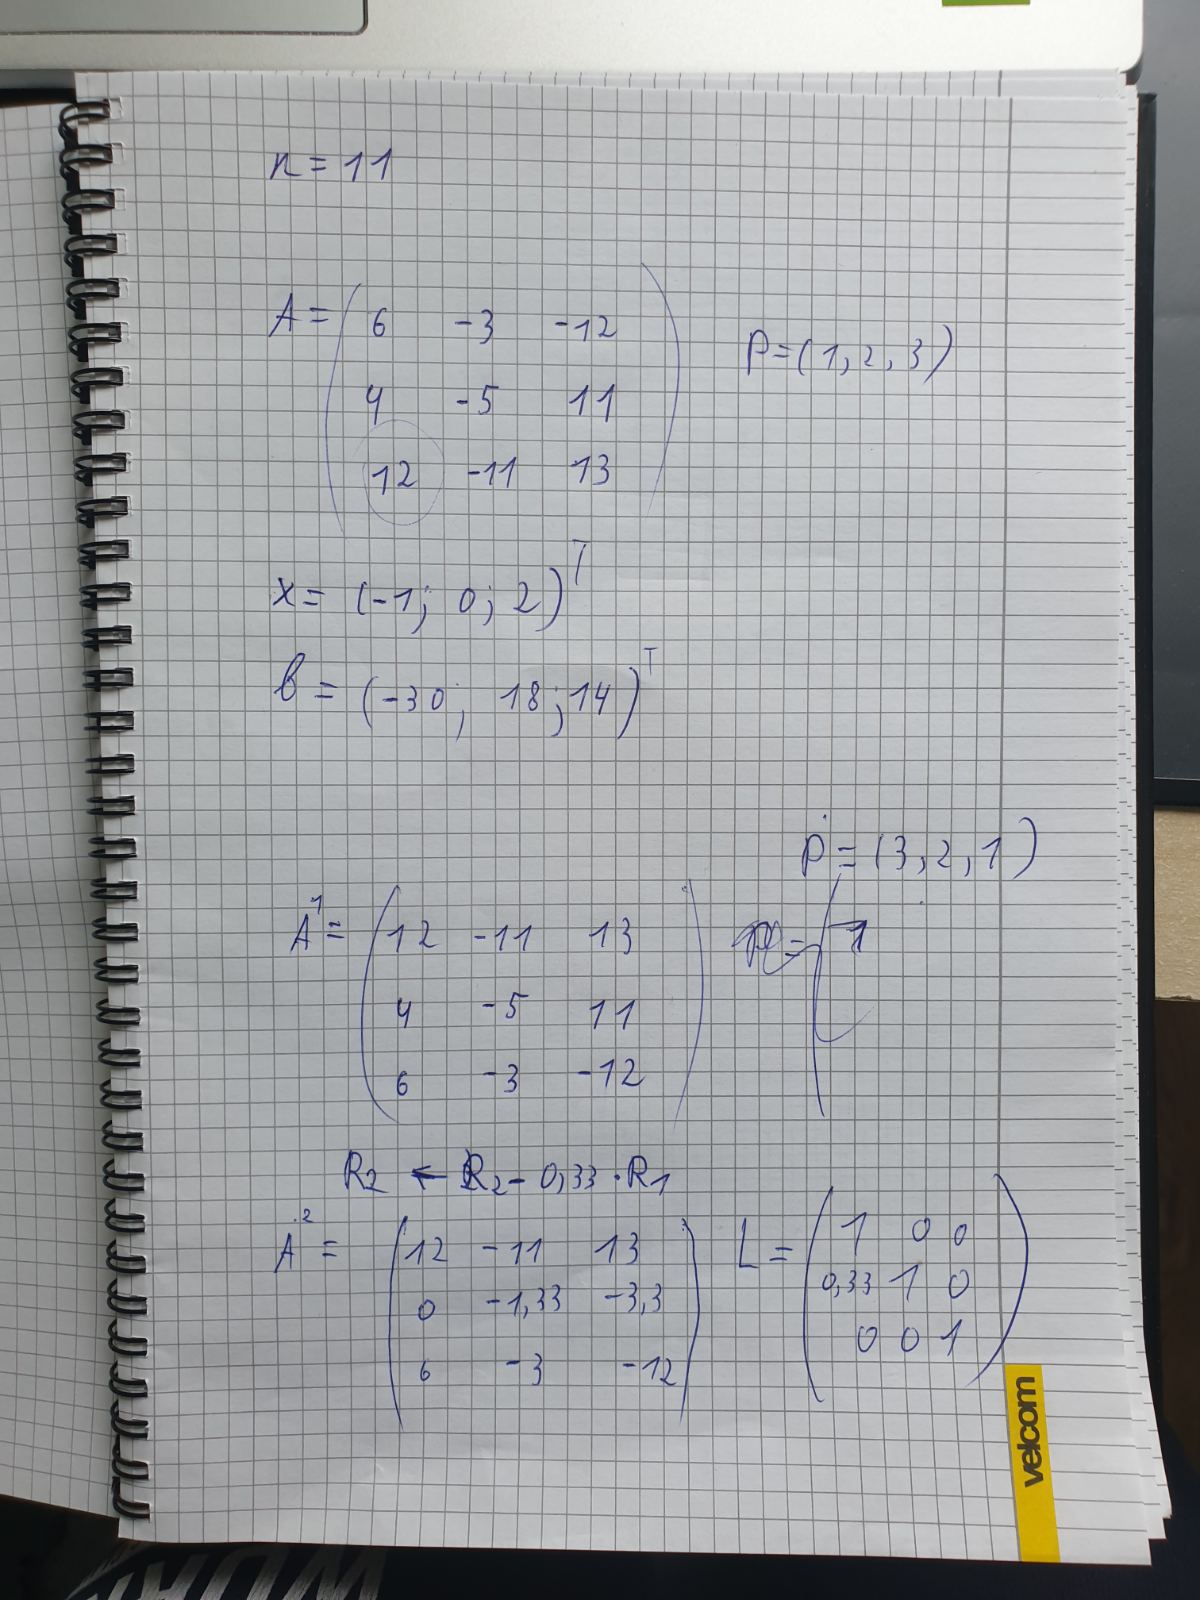 n = 11
A = ( 6 -3 -12
4 -5 11
12 -11 13 )
P = (1, 2, 3)
x = (-1; 0; 2)^T
b = (-30; 18; 14)^T
P = (3, 2, 1)
A^1 = ( 12 -11 13
4 -5 11
6 -3 -12 )
R2 ← R2 - 0,33 · R1
A^2 = ( 12 -11 13
0 -1,33 -3,3
6 -3 -12 )
L = ( 1 0 0
0,33 1 0
0 0 1 )
velcom